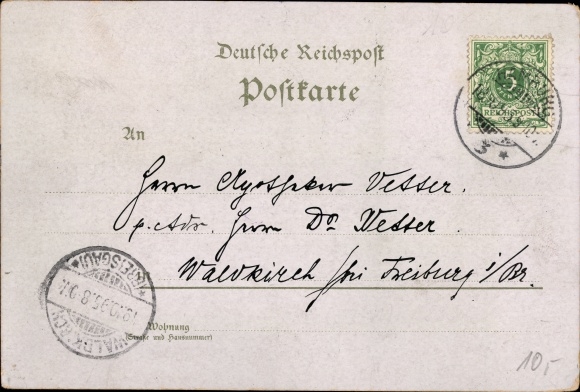 Deutsche Reichspost
Postkarte
5
REICHSPOST
3 *
An
Herrn Apotheker Vetter
p. Adr. Herrn Dr. Wetter
Waldkirch bei Freiburg i/Br.
WALDKIRCH
*(BREISGAU)*
Wohnung
(Straße und Hausnummer)
10,-